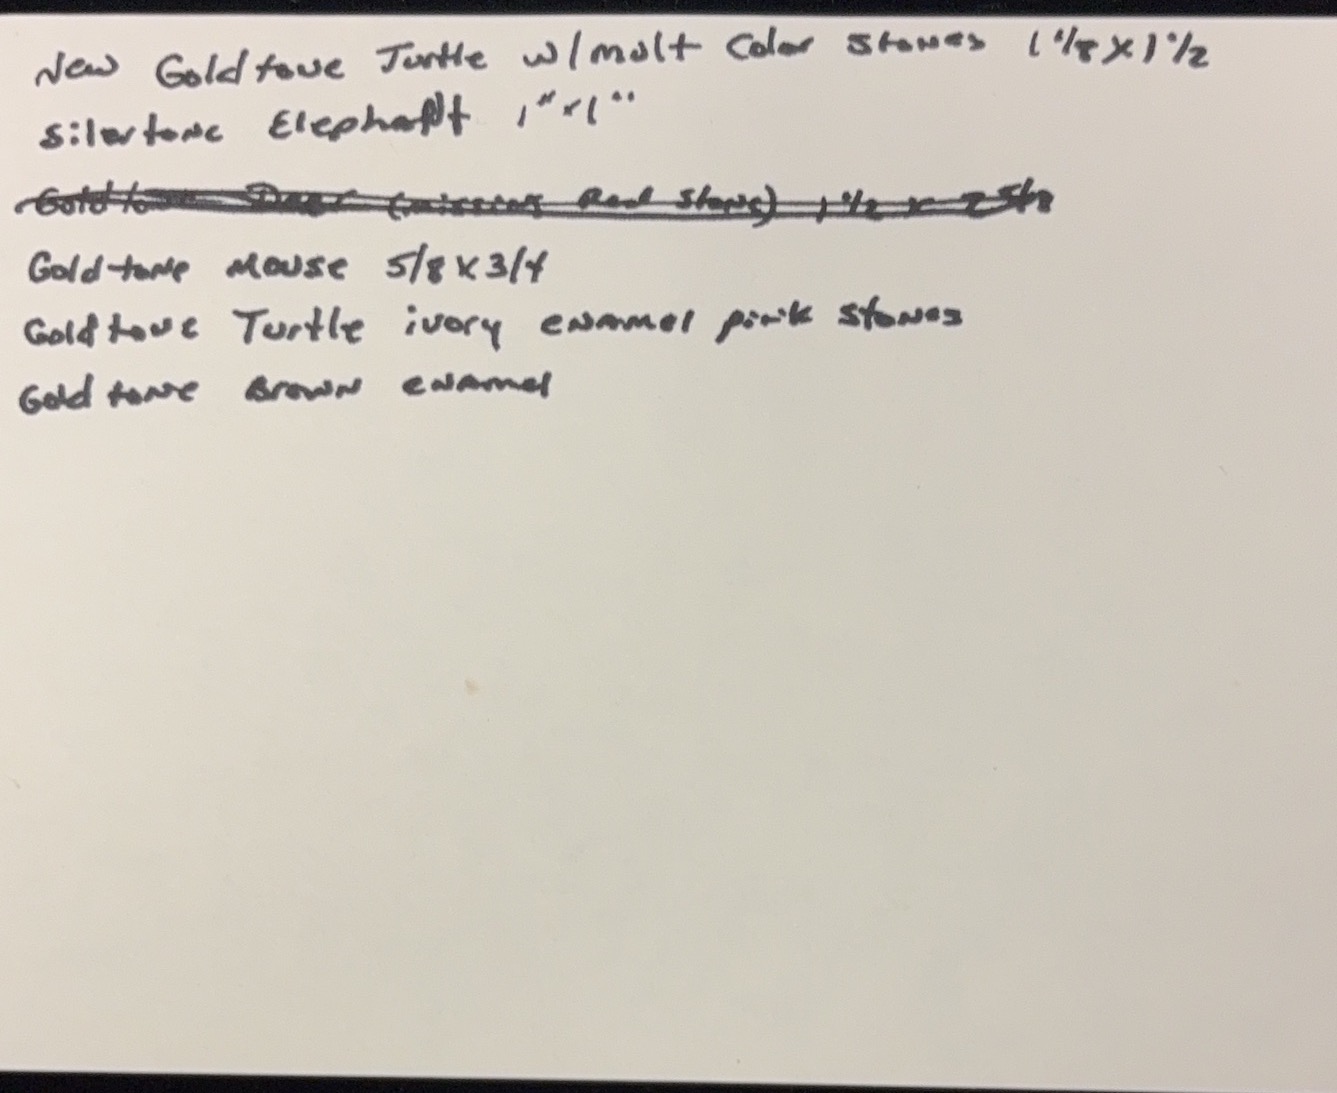 New Goldtone Turtle w/mult Color Stones 1 1/8 x 1 1/2
Silertone Elephant 1" x 1"
(missing Red Stone) 1 1/2 x 2 5/8
Goldtone Mouse 5/8 x 3/4
Goldtone Turtle ivory enamel pink stones
Goldtone Brown enamel